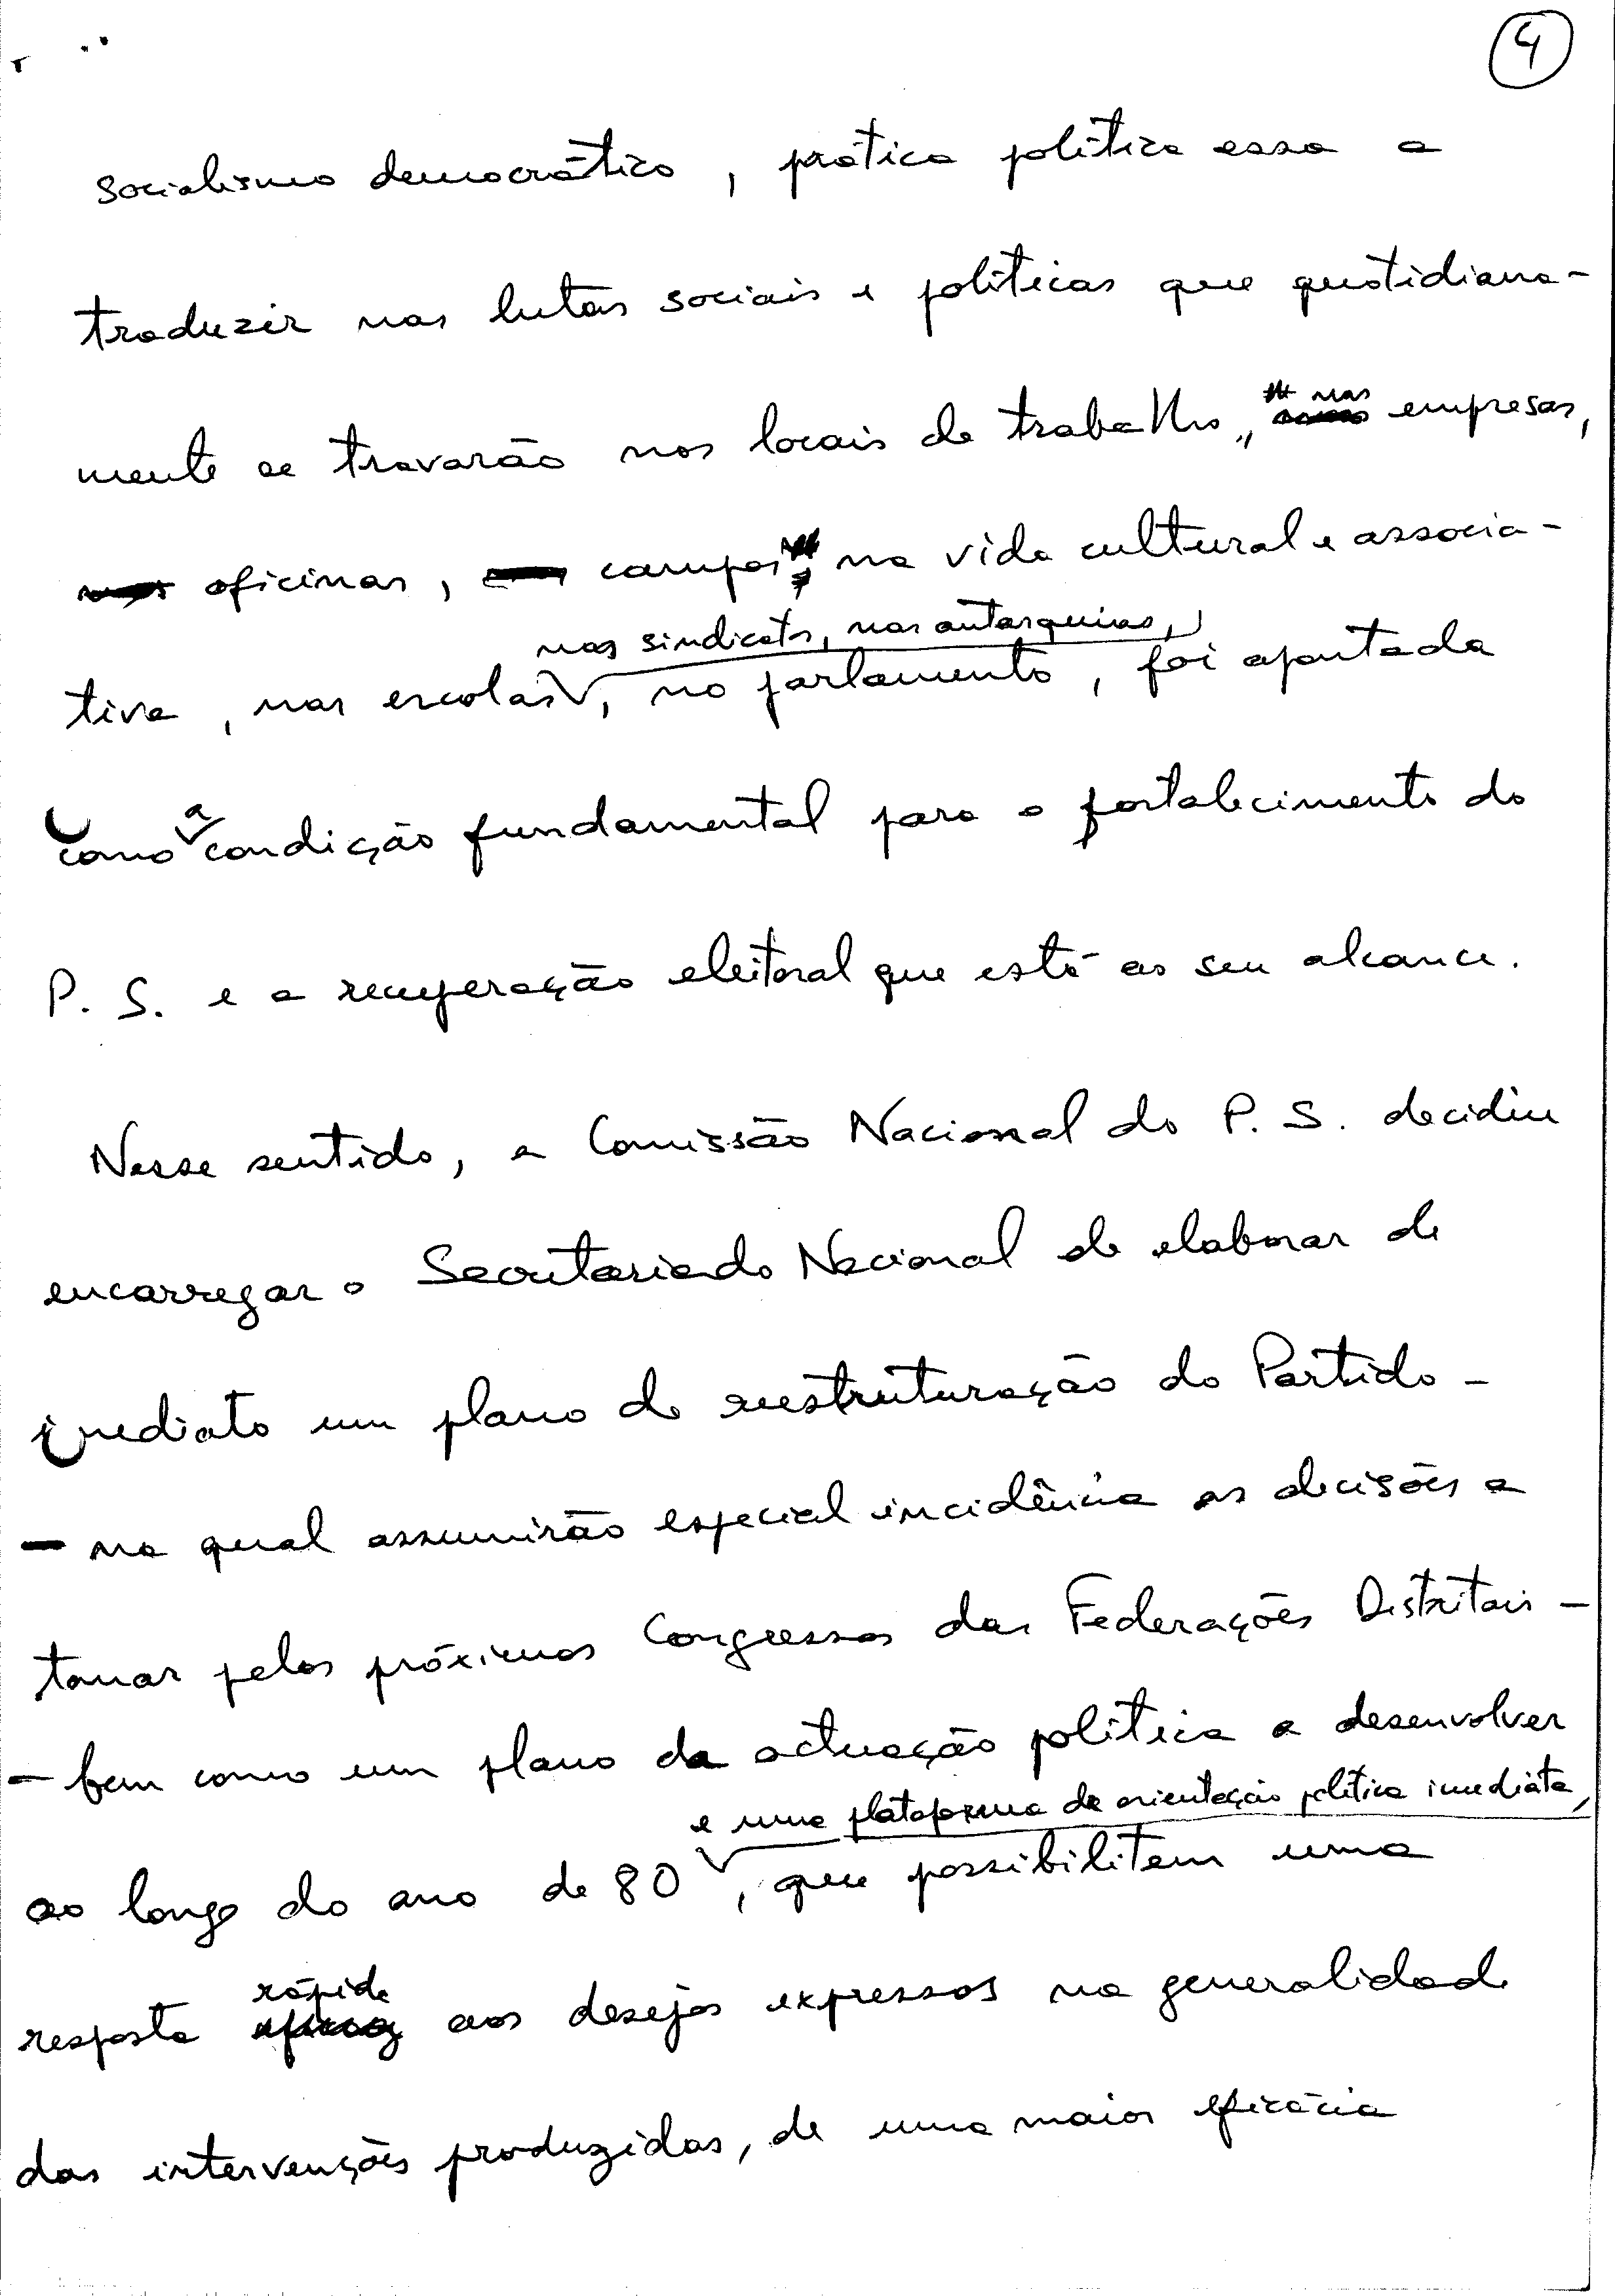 4
socialismo democrático, prática política essa a
traduzir nas lutas sociais e políticas que quotidiana-
mente se travarão nos locais de trabalho, nas empresas,
oficinas, campos, na vida cultural e associa-
nos sindicatos, nas autarquias,
tiva, nas escolas, no parlamento, foi apontada
como a condição fundamental para o fortalecimento do
P. S. e a recuperação eleitoral que está ao seu alcance.
Nesse sentido, a Comissão Nacional do P. S. decidiu
encarregar o Secretariado Nacional de elaborar de
imediato um plano de reestruturação do Partido -
- no qual assumirão especial incidência as decisões a
tomar pelos próximos Congressos das Federações Distritais -
- bem como um plano da actuação política a desenvolver
e uma plataforma de orientação política imediata,
ao longo do ano de 80, que possibilitem uma
rápida
resposta aos desejos expressos na generalidade
das intervenções produzidas, de uma maior eficácia